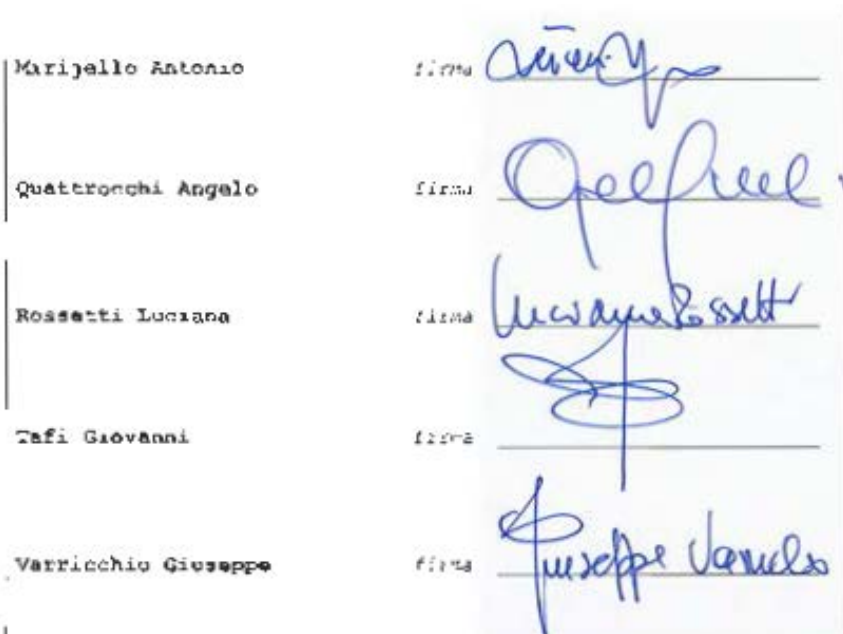 Marijello Antonio firma
Quattrocchi Angelo firma
Rossetti Luciana firma Luciana Rossetti
Tafi Giovanni firma
Varricchio Giuseppe firma Giuseppe